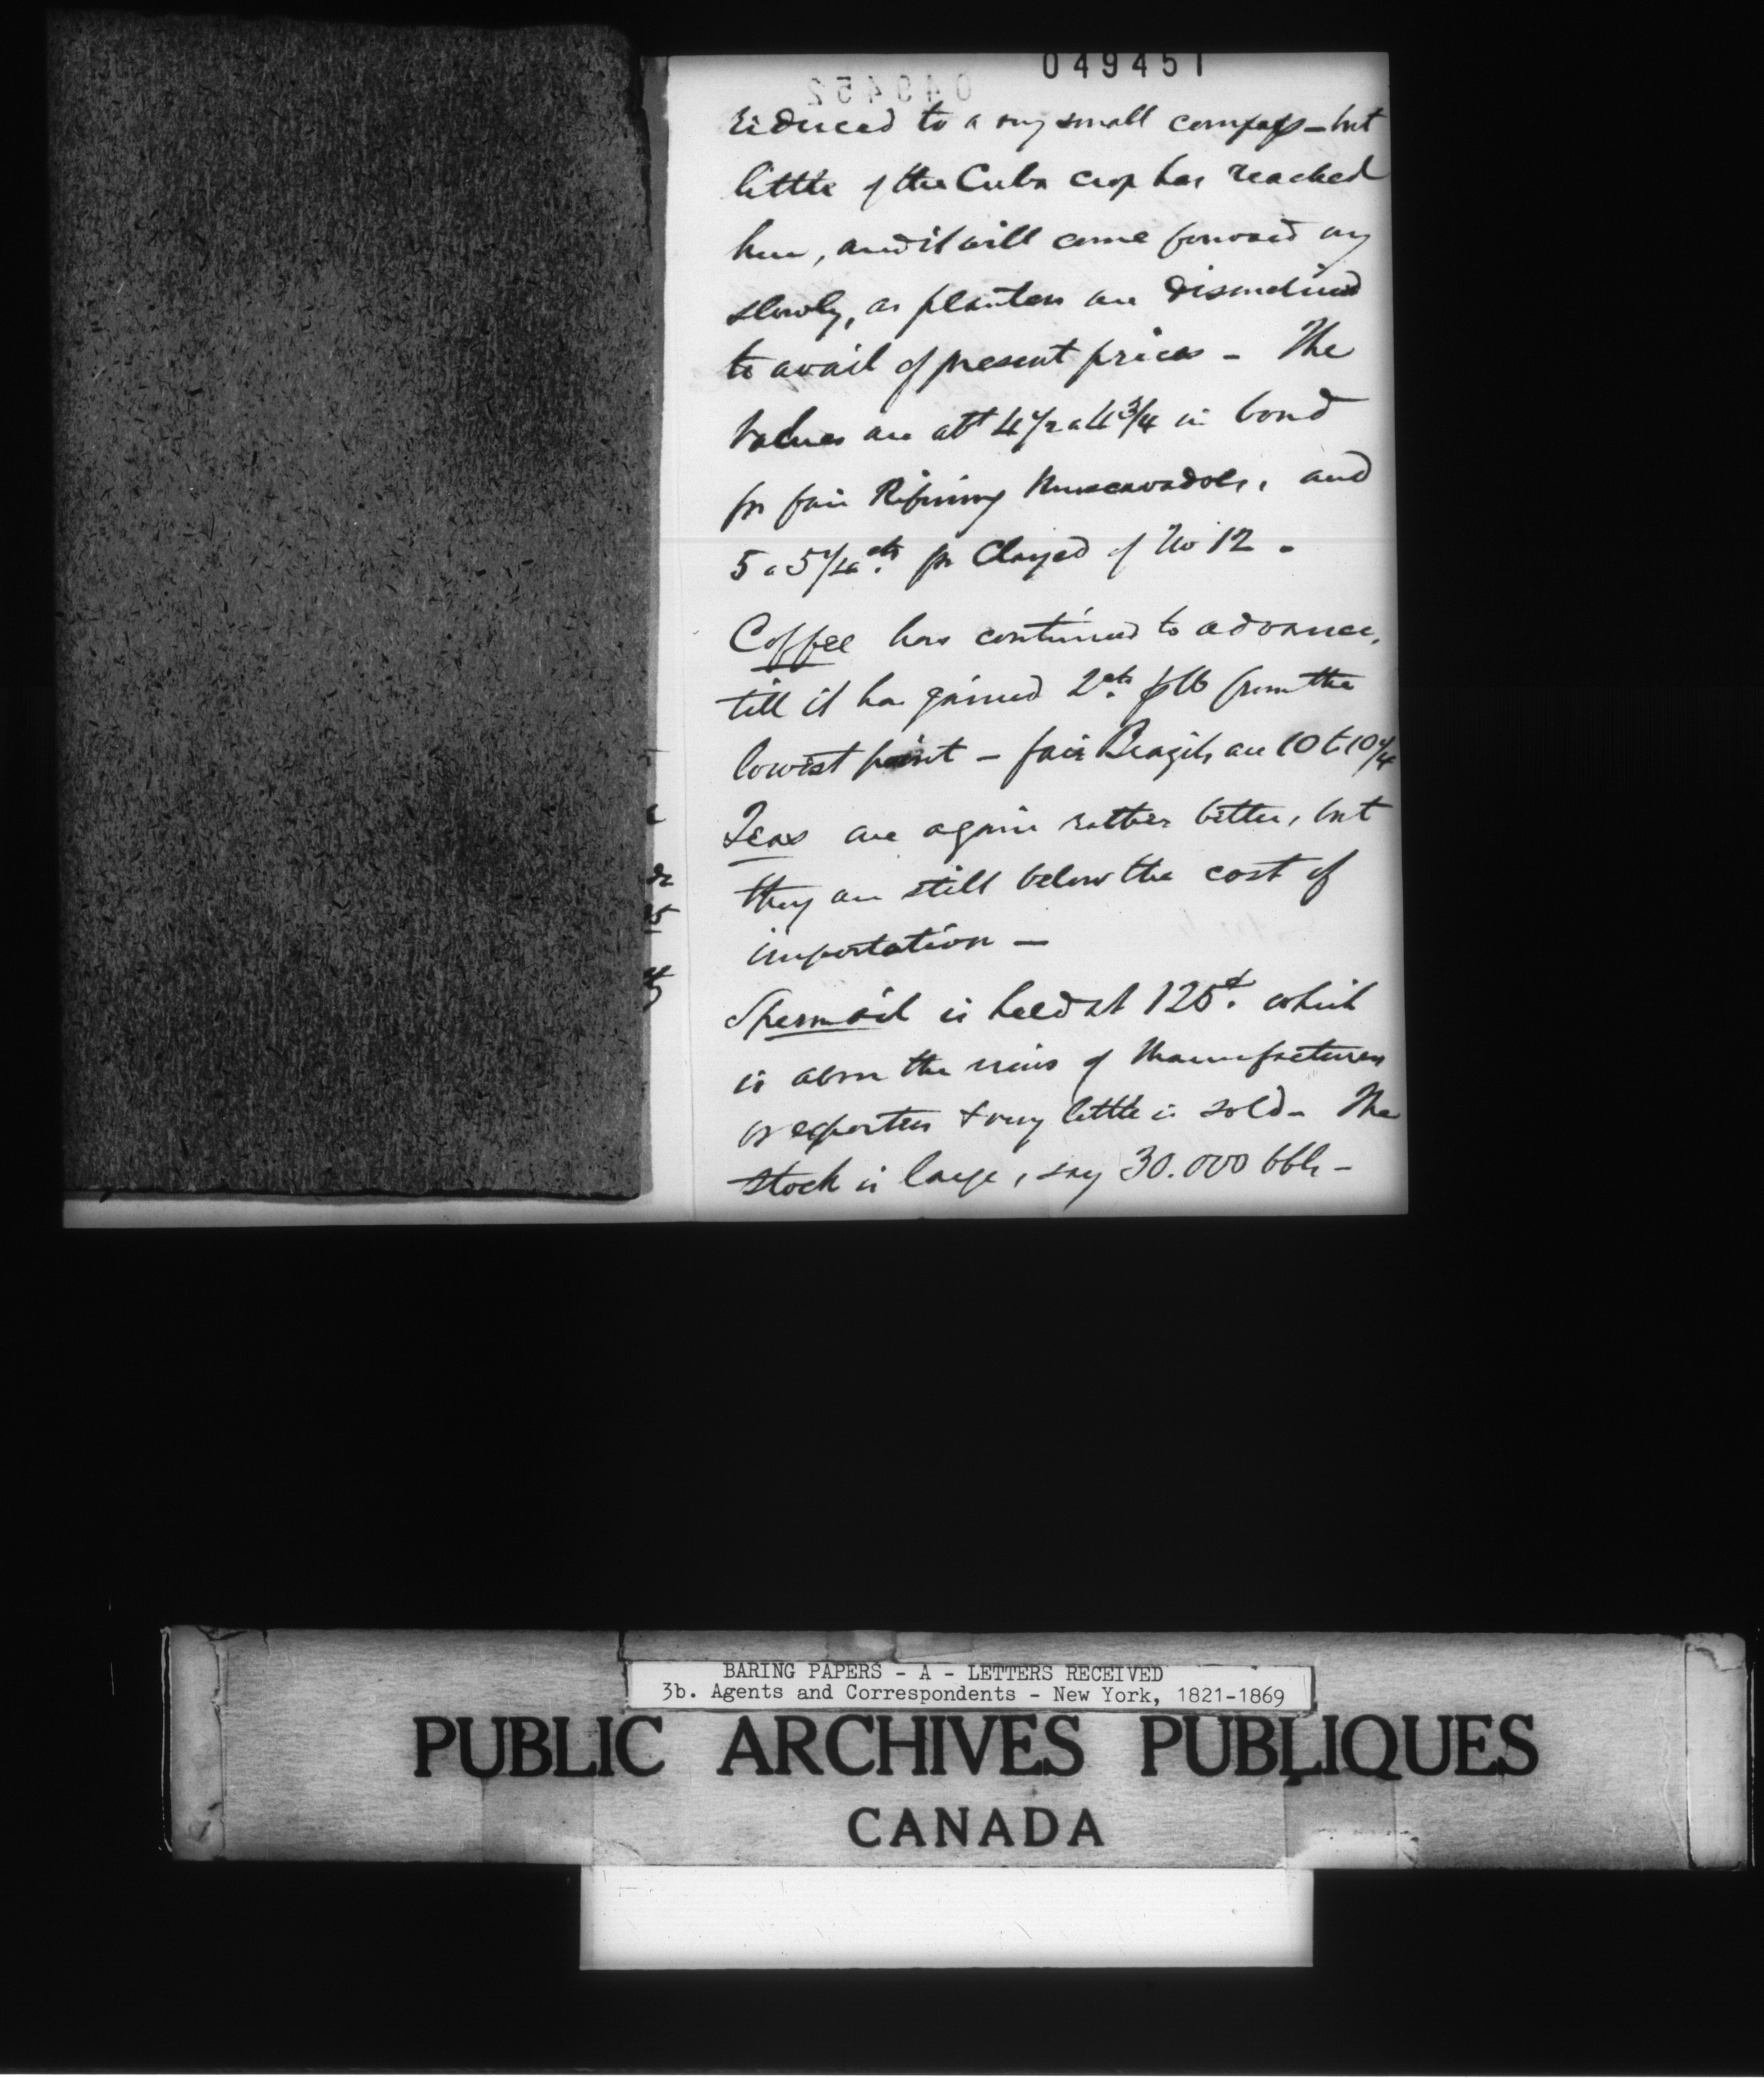 049451
049452
reduced to a very small compass - but
little of the Cuba crop has reached
here, and it will come forward very
slowly, as planters are disinclined
to avail of present prices - The
values are abt 4 1/2 a 4 3/4 in bond
for fair Refining Muscavadoes, and
5 a 5 1/4 cts. for Clayed of No 12.
Coffee has continued to advance,
till it has gained 2 cts. p lb from the
lowest point - fair Brazils are 10 to 10 1/4
Teas are again rather better, but
they are still below the cost of
importation -
Sperm oil is held at 125 cts. which
is above the views of Manufacturers
or exporters & very little is sold - The
stock is large, say 30.000 bbls -
BARING PAPERS - A - LETTERS RECEIVED
3b. Agents and Correspondents - New York, 1821-1869
PUBLIC ARCHIVES PUBLIQUES
CANADA